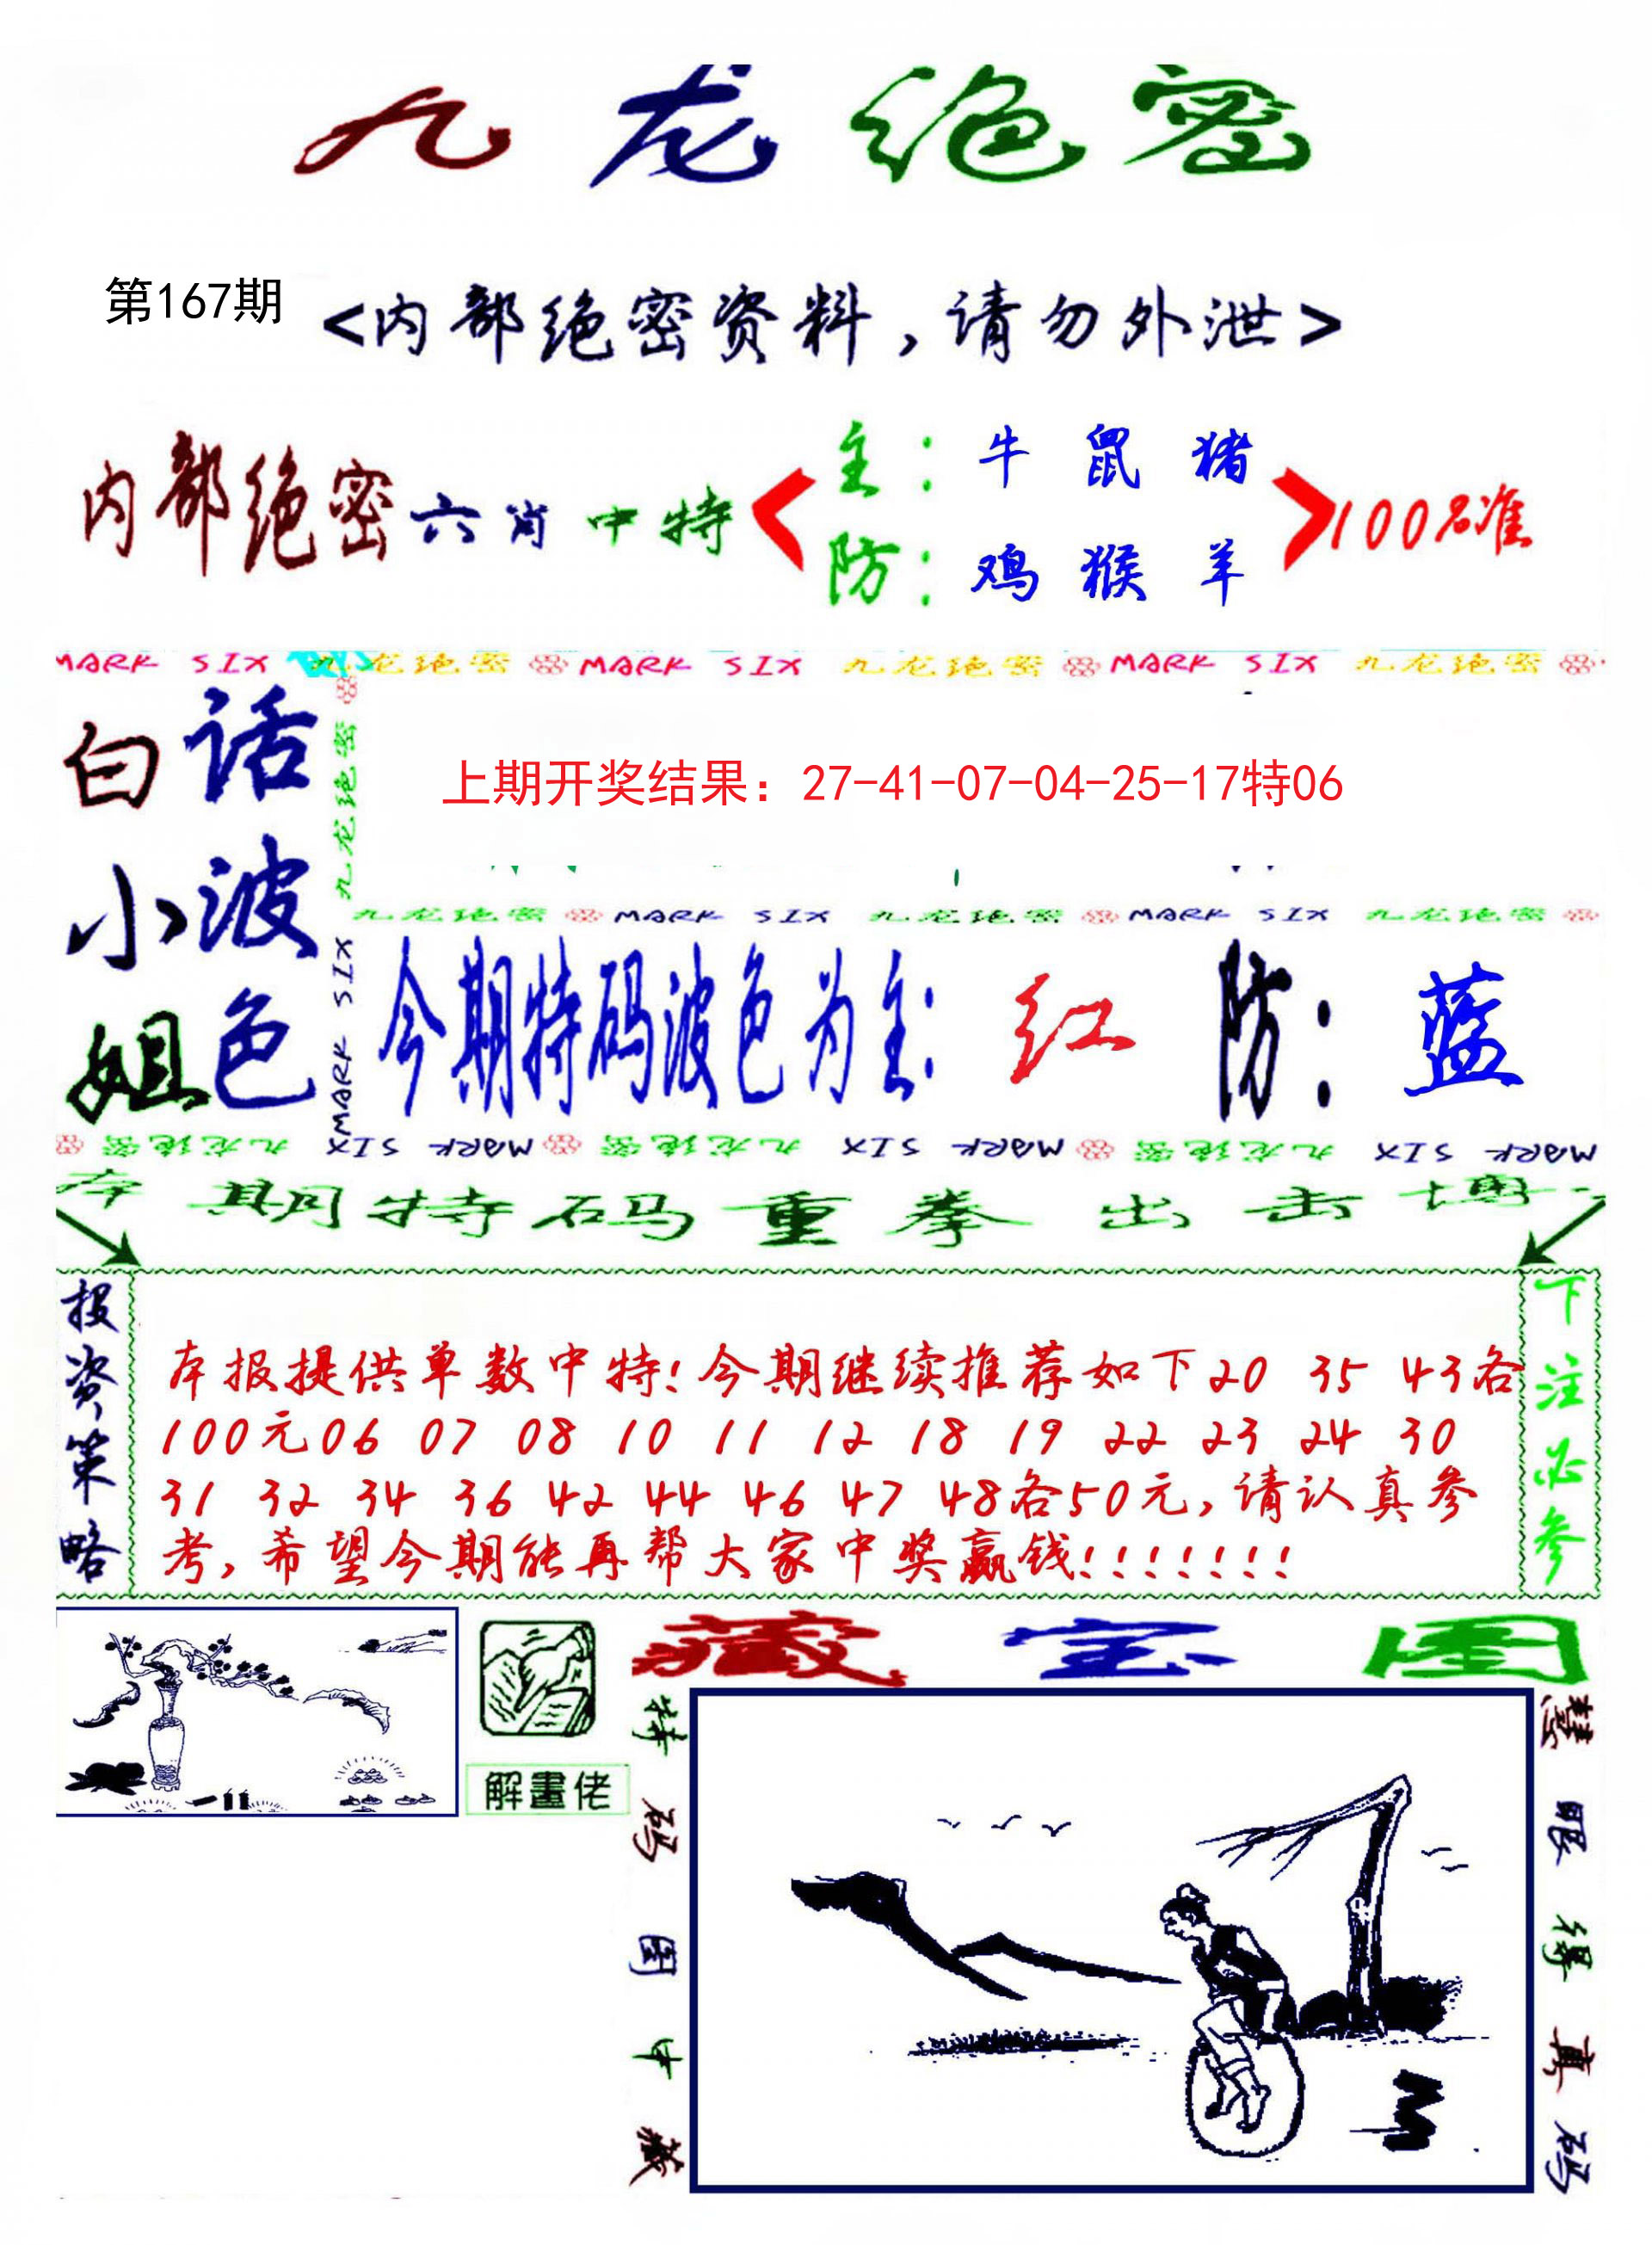 九龙绝密
第167期
<内部绝密资料,请勿外泄>
内部绝密六肖中特
主: 牛 鼠 猪
防: 鸡 猴 羊
100%准
MARK SIX 九龙绝密 MARK SIX 九龙绝密 MARK SIX 九龙绝密
白小姐
话波色
九龙绝密
MARK SIX
上期开奖结果：27-41-07-04-25-17特06
九龙绝密 MARK SIX 九龙绝密 MARK SIX 九龙绝密
今期特码波色为主: 红 防: 蓝
九龙绝密 MARK SIX 九龙绝密 MARK SIX 九龙绝密 MARK SIX
本期特码重拳出击博
投资策略
本报提供单数中特!今期继续推荐如下20 35 43各
100元06 07 08 10 11 12 18 19 22 23 24 30
31 32 34 36 42 44 46 47 48各50元,请认真参
考,希望今期能再帮大家中奖赢钱!!!!!!!
下注必参
解畫佬
藏宝图
特码图中藏
慧眼得真码